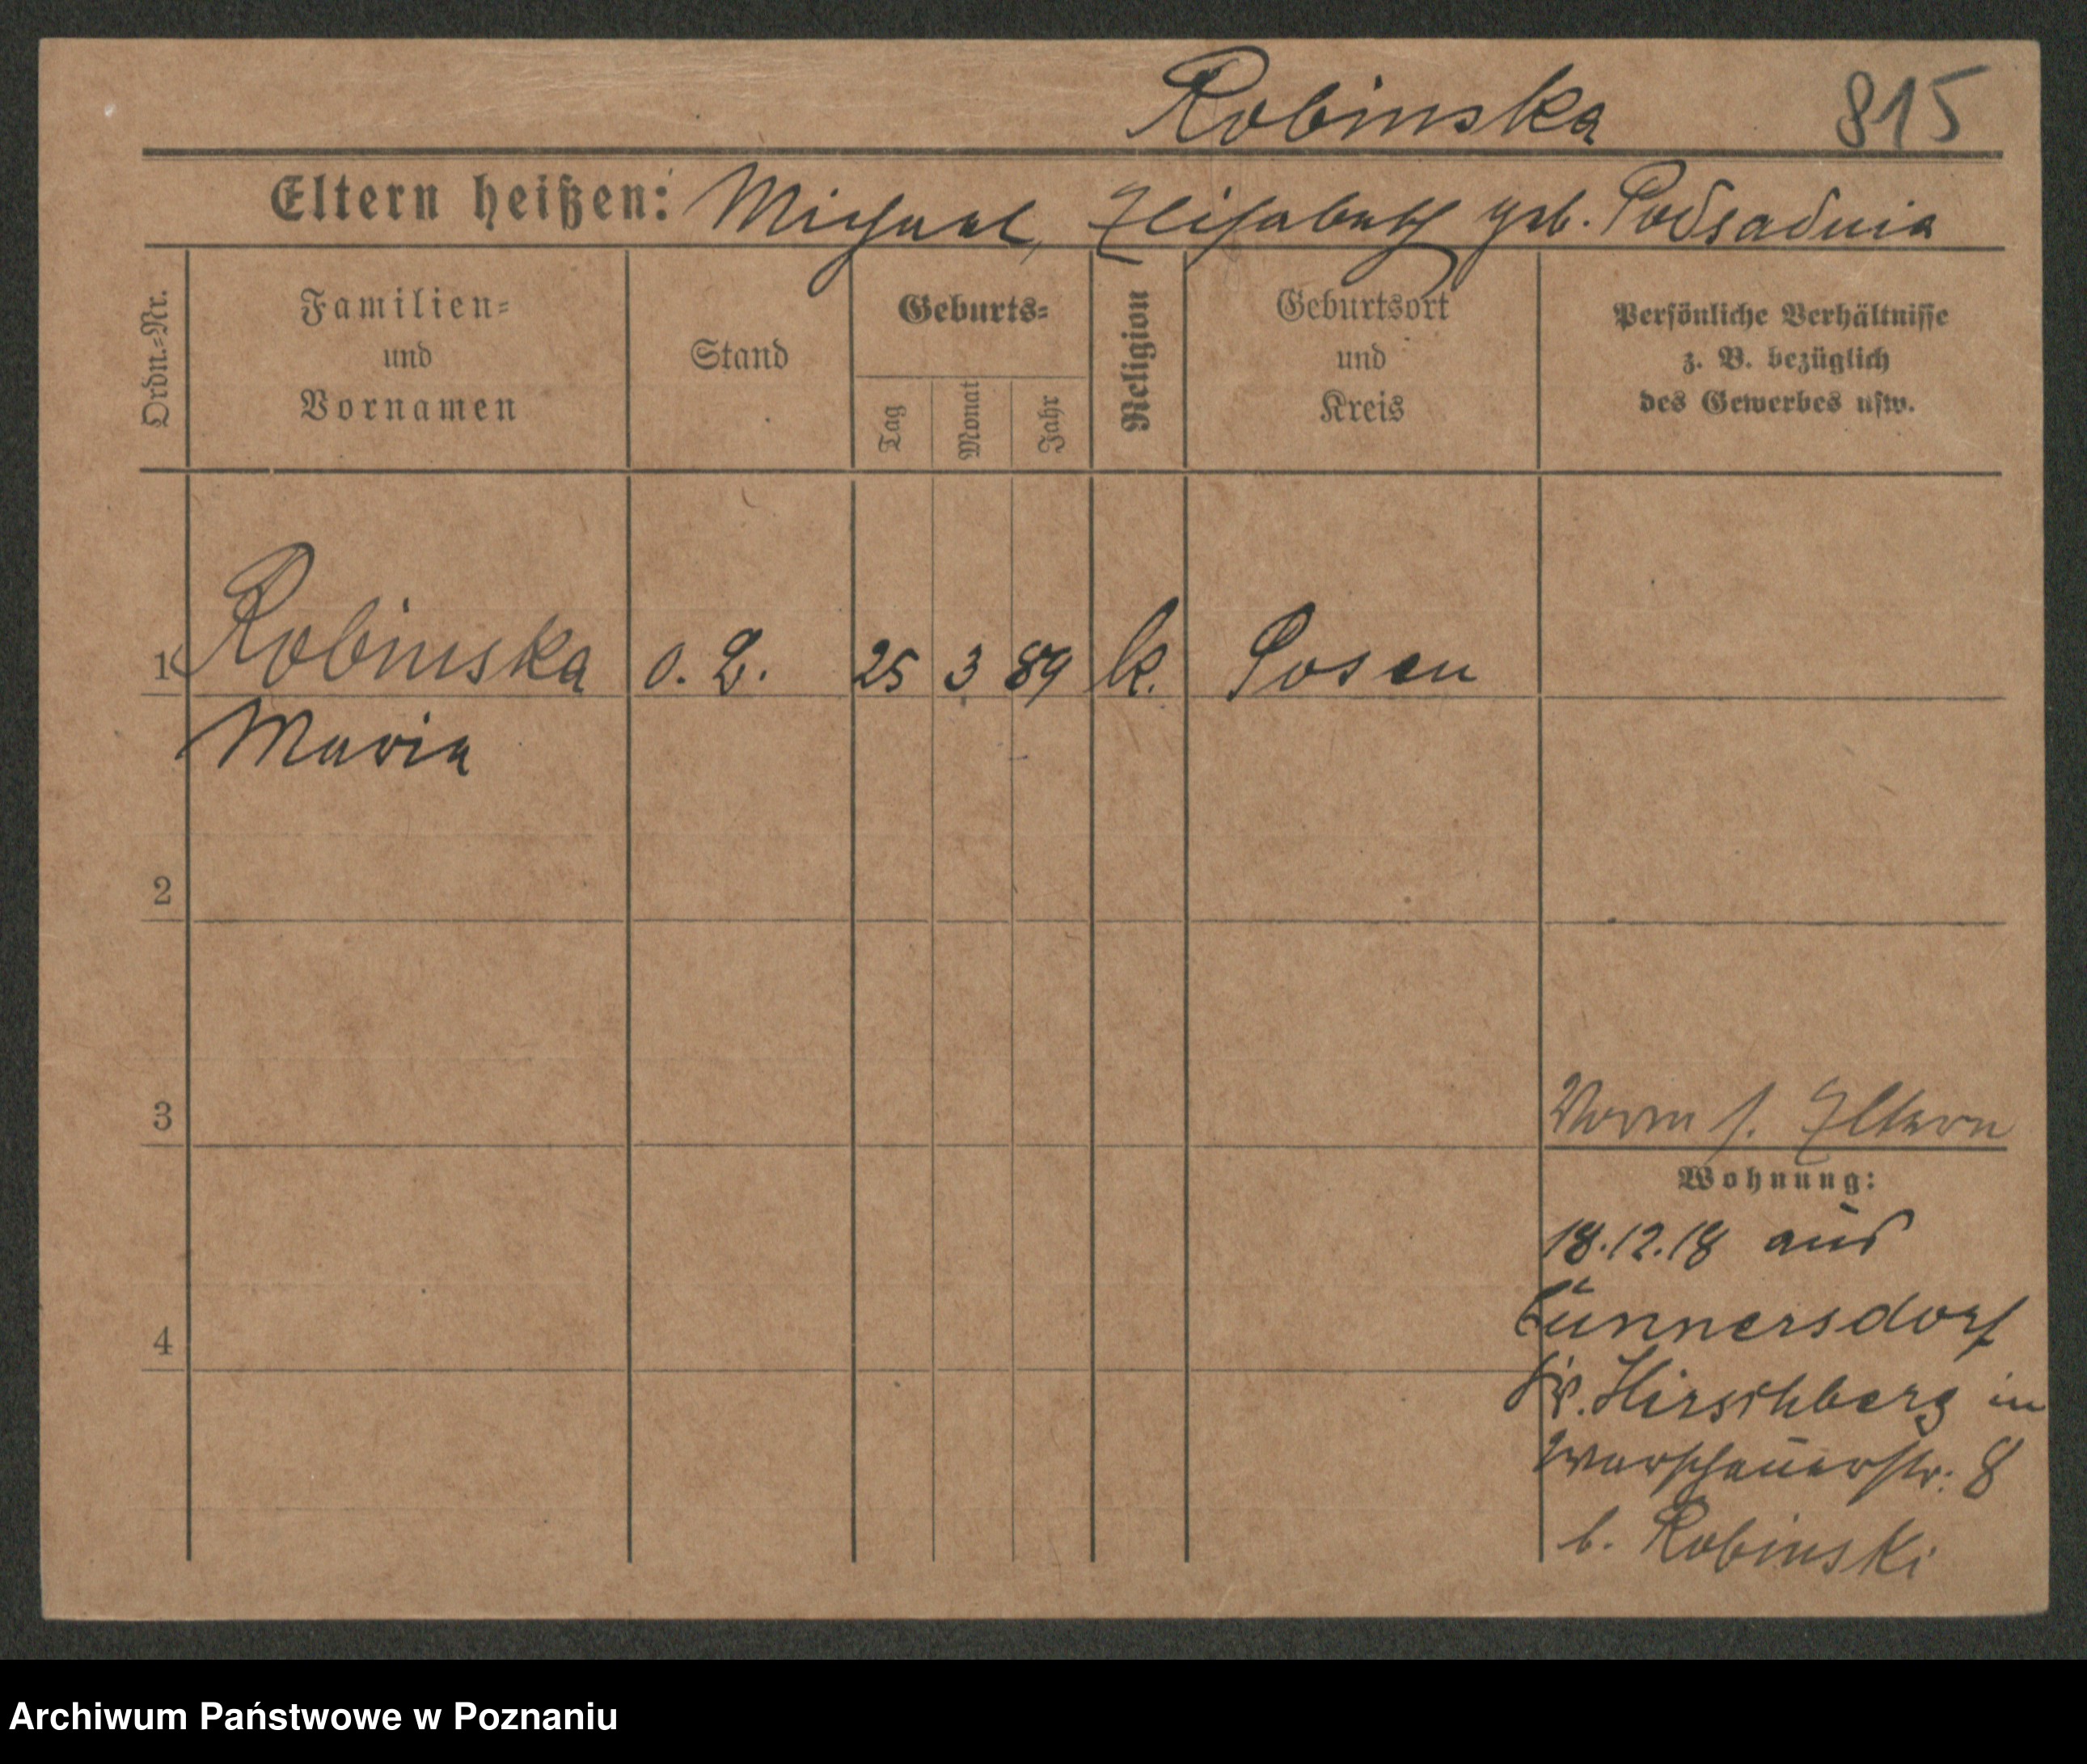 Robinska 815
Eltern heißen: Michael, Elisabeth geb. Podsadnia
Ordn.-Nr.
Familien-
und
Vornamen
Stand
Geburts-
Tag
Monat
Jahr
Religion
Geburtsort
und
Kreis
Persönliche Verhältnisse
z. B. bezüglich
des Gewerbes usw.
1 Robinska o. B. 25 3 89 k. Posen
Maria
2
3
Vorm f. Eltern
Wohnung:
18.12.18 aus
Cunnersdorf
Kr. Hirschberg in
Warschauerstr. 8
b. Robinski
4
Archiwum Państwowe w Poznaniu